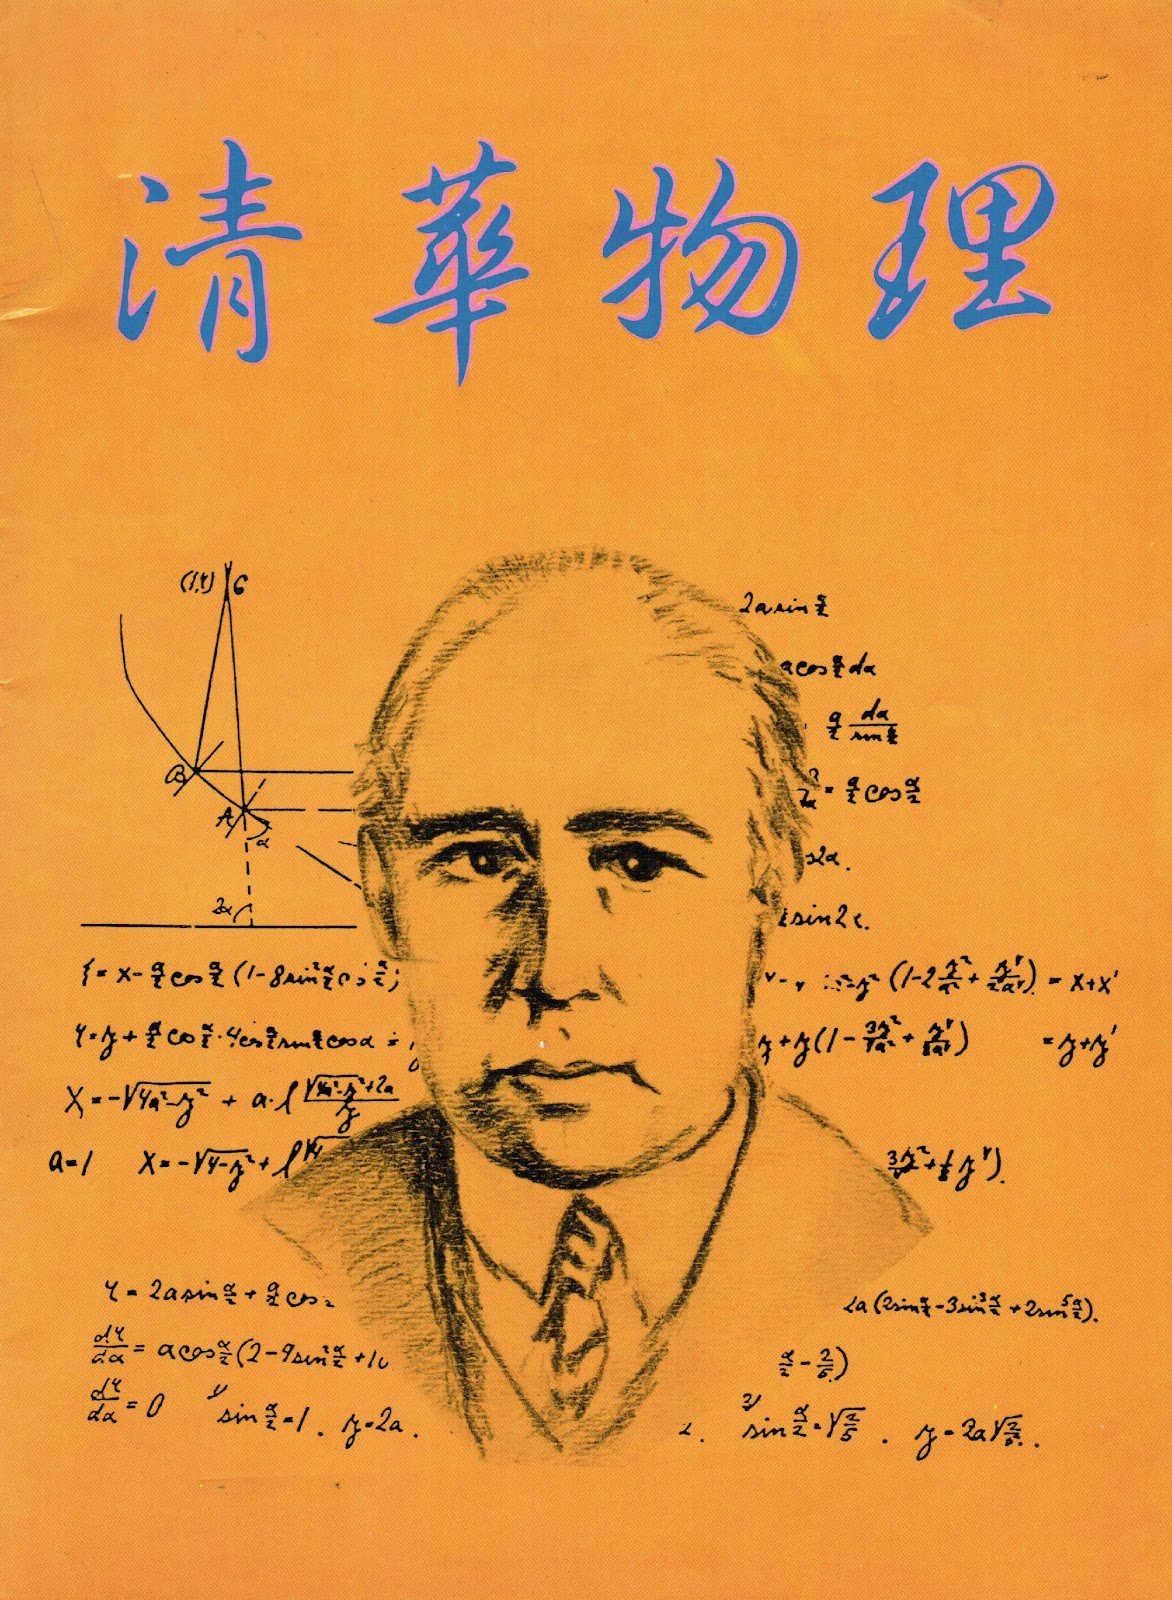 清華物理
(1,4) C
2a sin α/2
a cos α/2 dα
a/2 dα/sin α/2
= a/2 cos α/2
B
A
α
s2α.
2α
sin2α.
ξ = x - a/2 cos α/2 (1-8 sin² α/2 cos² α/2)
(1-2 y²/a² + y⁴/2a⁴) = x+x'
η = y + a/2 cos α/2 · 4 cos α/2 sin α/2 cos α =
y + y(1 - 3y²/4a² + y⁴/8a⁴) = y+y'
X = -√4a²-y² + a·l √4a²-y²+2a/y
a=1 X = -√4-y² + l √4
3y²/4 + 1/8 y⁴).
η = 2a sin α/2 + a/2 cos
2a (2sin α/2 - 3sin³ α/2 + 2sin⁵ α/2).
dη/dα = a cos α/2 (2-9 sin² α/2 + 10
α/2 - 2/5)
dη/dα = 0 1) sin α/2 = 1. y=2a. 2) sin α/2 = √2/5. y = 2a √2/5.